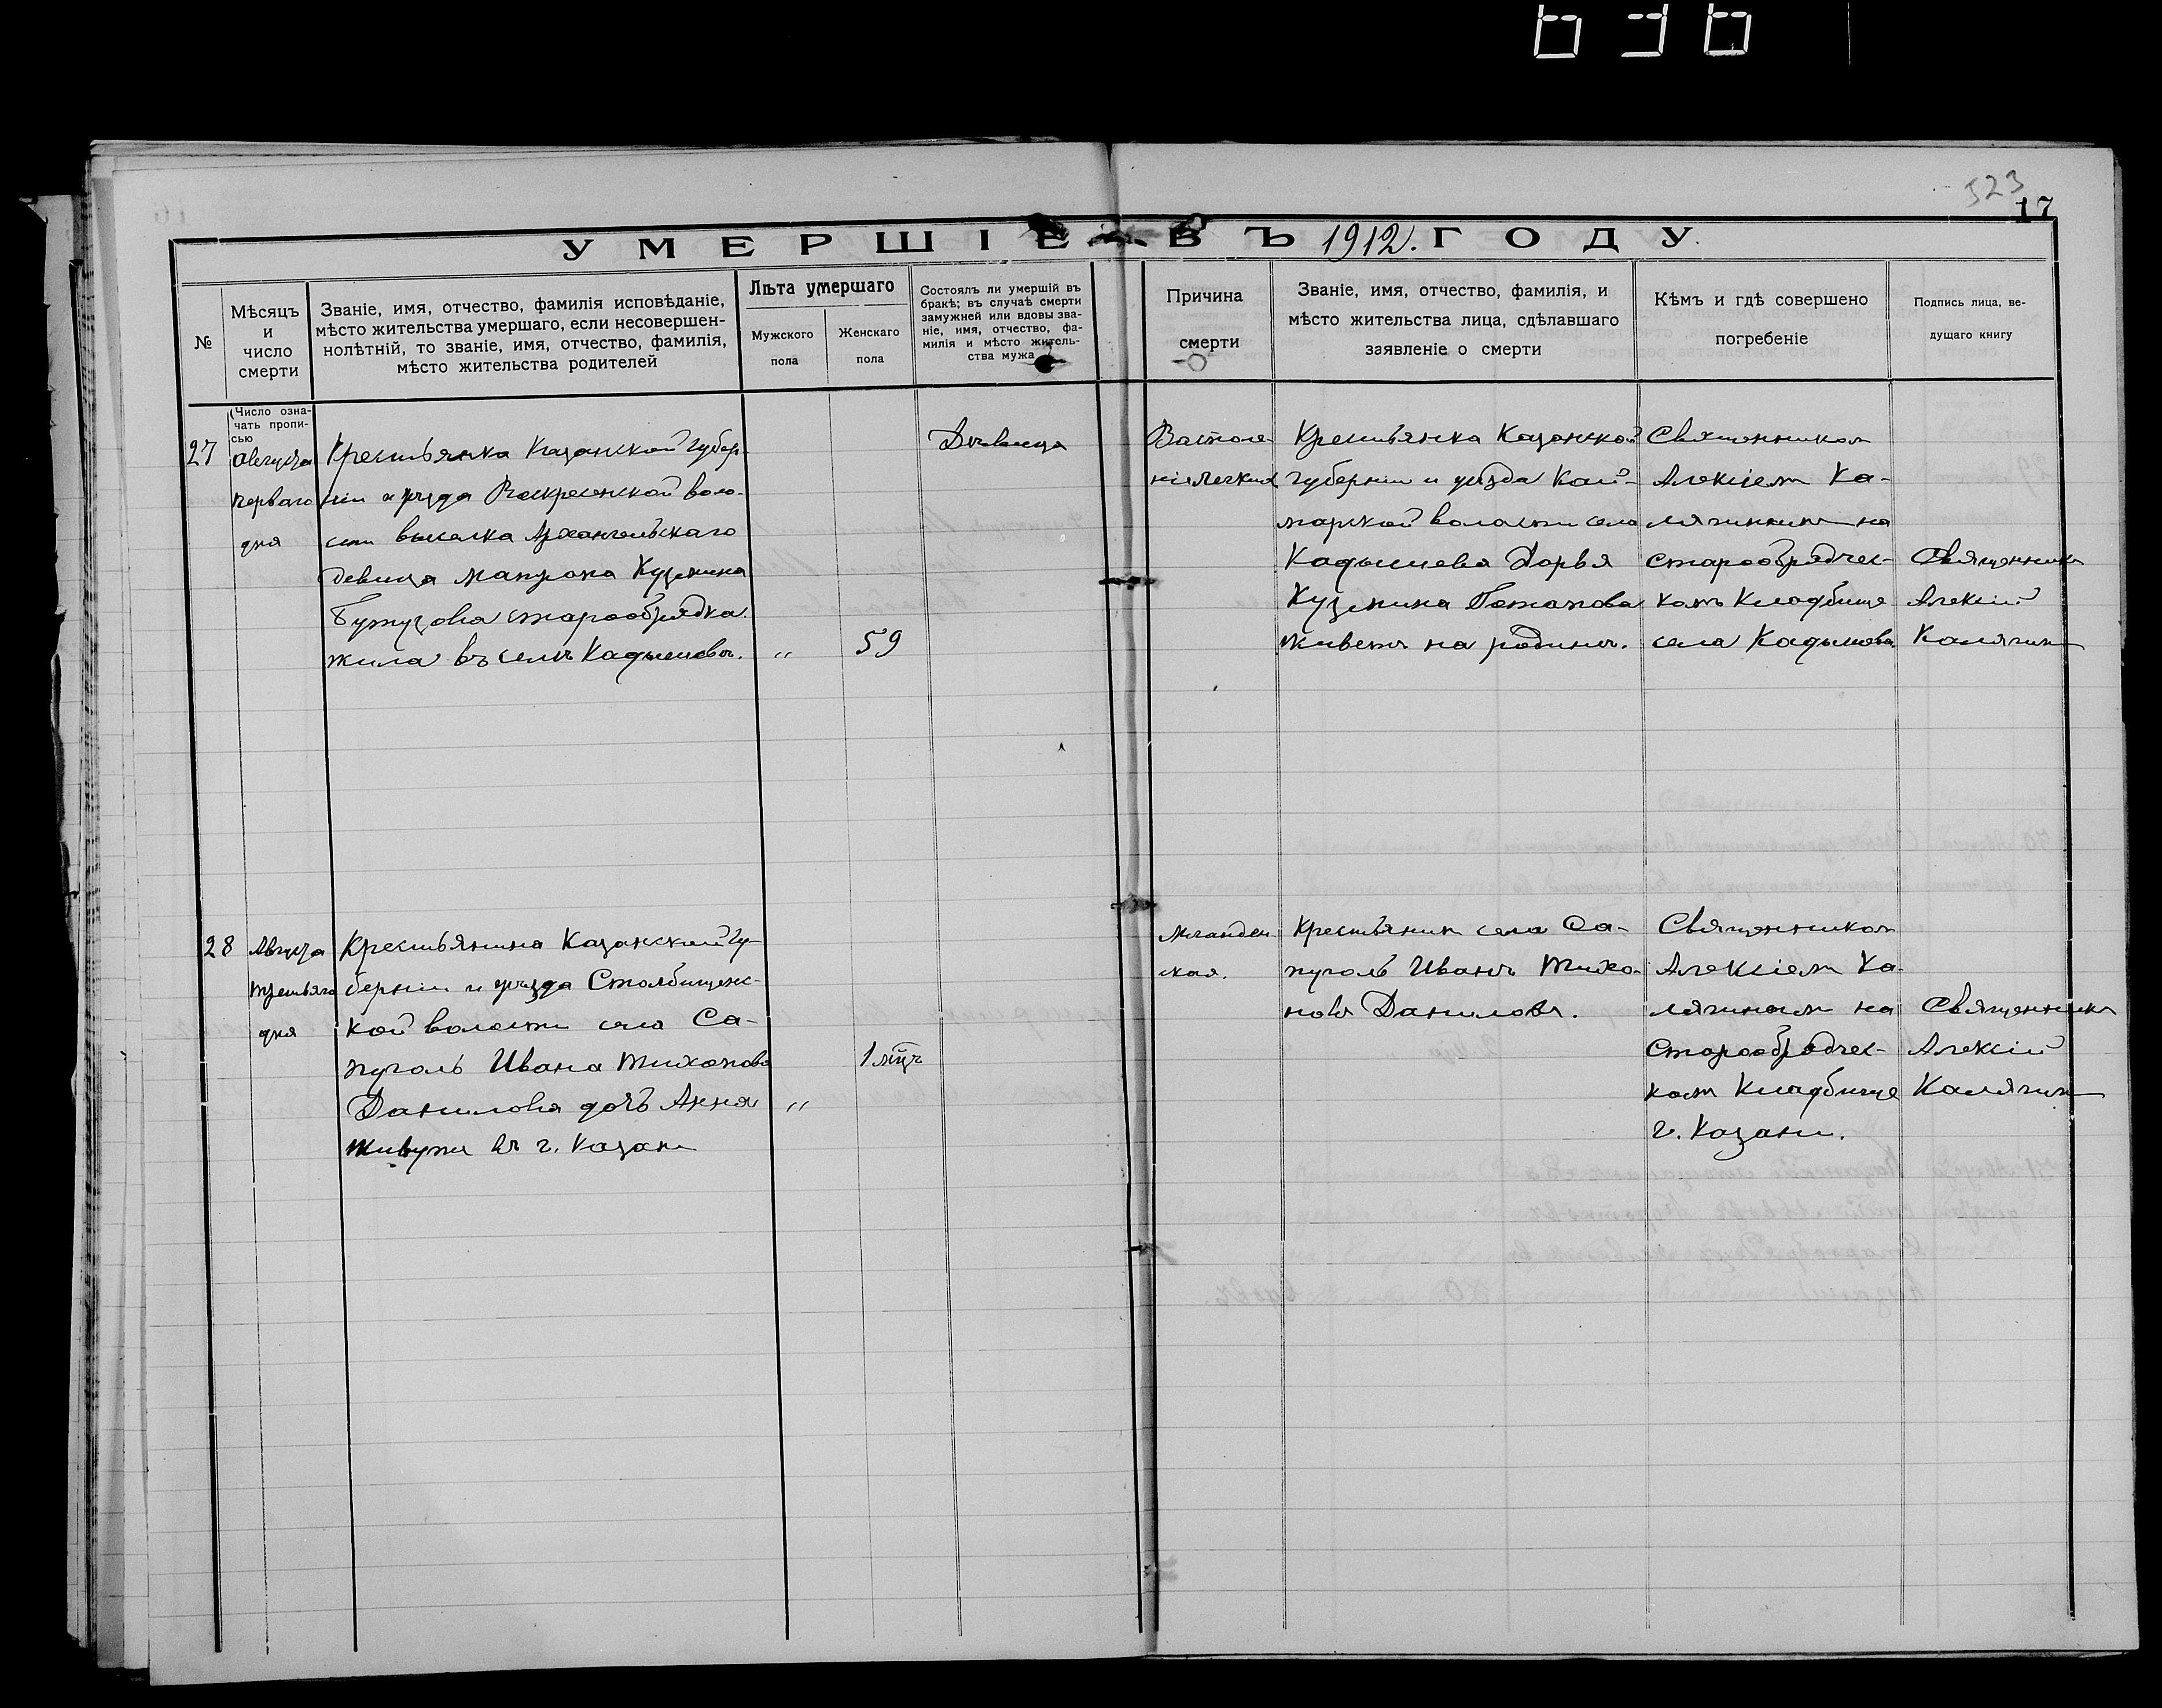 523
17
УМЕРШІЕ ВЪ 1912. ГОДУ.
№
Мѣсяцъ
и
число
смерти
Званіе, имя, отчество, фамилія исповѣданіе,
мѣсто жительства умершаго, если несовершен-
нолѣтній, то званіе, имя, отчество, фамилія,
мѣсто жительства родителей
Лѣта умершаго
Мужского
пола
Женскаго
пола
Состоялъ ли умершій въ
бракѣ; въ случаѣ смерти
замужней или вдовы зва-
ніе, имя, отчество, фа-
милія и мѣсто житель-
ства мужа
Причина
смерти
Званіе, имя, отчество, фамилія, и
мѣсто жительства лица, сдѣлавшаго
заявленіе о смерти
Кѣмъ и гдѣ совершено
погребеніе
Подпись лица, ве-
дущаго книгу
(Число озна-
чать пропи-
сью
27
Августа
перваго
дня
Крестьянка Казанской губер-
ніи и уѣзда Воскресенской воло-
сти выселка Архангельскаго
девица Матрона Кузмина
старообрядка.
жила въ селѣ Кадышевѣ.
"
59
Дѣвица
Воспале-
ніе легкихъ
Крестьянка Казанской
губерніи и уѣзда Кай-
марской волости села
Кадышева Дарья
Кузмина Потапова
живетъ на родинѣ.
Священникомъ
Алексіем Ка-
лягинымъ на
старообрядчес-
комъ Кладбище
села Кадышева.
Священникъ
Алексій
Калягинъ
28
Августа
третьяго
дня
Крестьянина Казанской гу-
берніи и уѣзда Столбищенс-
кой волости села Са-
пуголь Ивана Тихонова
Данилова дочь Анна
живутъ въ г. Казани
"
1 мѣц
Младен-
ская.
Крестьянин села Са-
пуголь Иванъ Тихо-
новъ Даниловъ.
Священником
Алексіем Ка-
лягином на
Старообрядчес-
ком Кладбище
г. Казани.
Священникъ
Алексій
Калягинъ